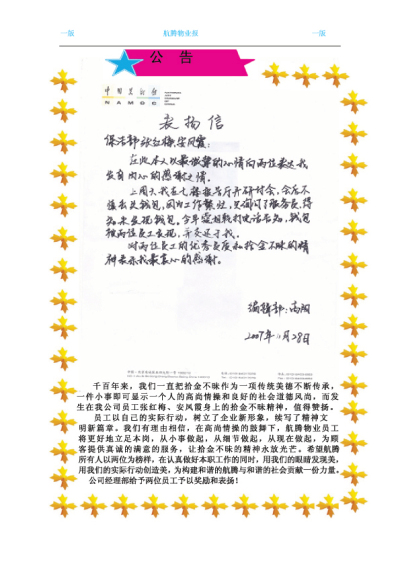 一版 航腾物业报 一版
公 告
中国美术馆
NAMOC
表扬信
保洁部张红梅、安凤霞:
在此本人以最诚挚的心情向两位表达我
发自内心的感谢之情。
上周六我在七楼报告厅开研讨会,会后不
慎丢失钱包,因为工作繁忙,
未发现钱包。今早
被两位员工发现,并交还于我。
对两位员工的优秀品质和拾金不昧的精
神表示我最衷心的感谢。
编辑部:
2007年11月28日
千百年来,我们一直把拾金不昧作为一项传统美德不断传承,
一件小事即可显示一个人的高尚情操和良好的社会道德风尚,而发
生在我公司员工张红梅、安凤霞身上的拾金不昧精神,值得赞扬。
员工以自己的实际行动,树立了企业新形象,续写了精神文
明新篇章。我们有理由相信,在高尚情操的鼓舞下,航腾物业员工
将更好地立足本岗,从小事做起,从细节做起,从现在做起,为顾
客提供真诚的满意的服务,让拾金不昧的精神永放光芒。希望航腾
所有人以两位为榜样,在认真做好本职工作的同时,用我们的眼睛发现美,
用我们的实际行动创造美,为构建和谐的航腾与和谐的社会贡献一份力量。
公司经理部给予两位员工予以奖励和表扬!